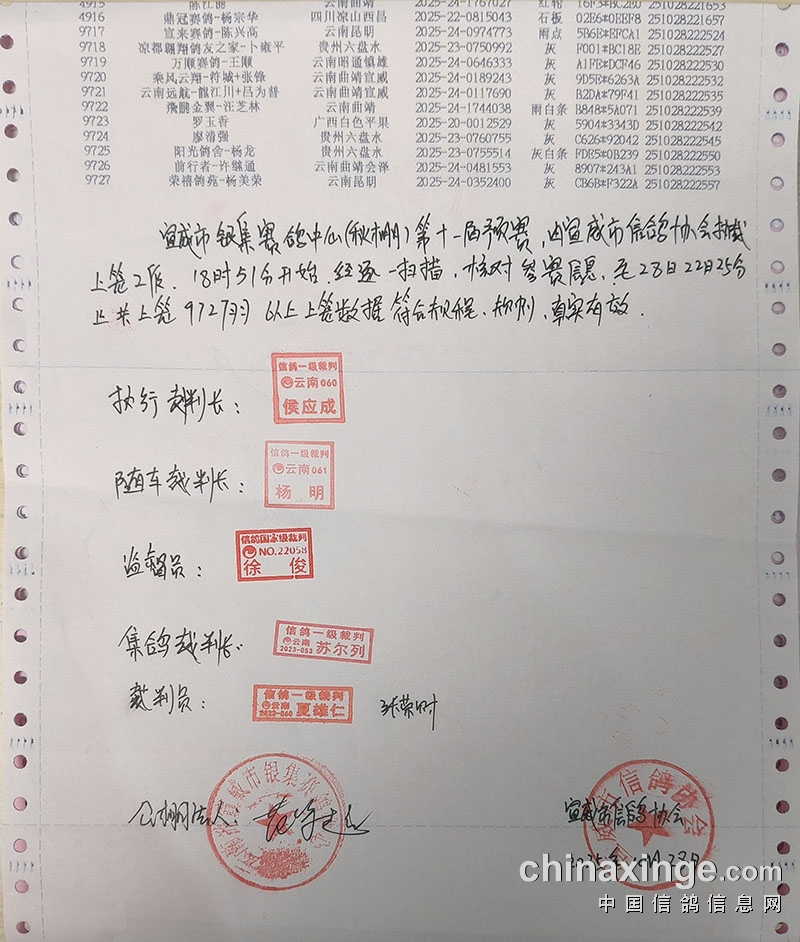 4915 陈江丽 云南曲靖 2025-24-1767027 红轮 251028221653
4916 鼎冠赛鸽-杨宗华 四川凉山西昌 2025-22-0815043 石板 02E6*0EEF8 251028221657
9717 宣来赛鸽-陈兴高 云南昆明 2025-24-0974773 雨点 5B6E*EFCA1 251028222523
9718 凉都翱翔鸽友之家-卜雍平 贵州六盘水 2025-23-0750992 灰 F001*BC18E 251028222527
9719 万顺赛鸽-王顺 云南昭通镇雄 2025-24-0646333 灰 A1FE*DCF46 251028222530
9720 乘风云翔-符城+张锋 云南曲靖宣威 2025-24-0189243 灰 9D5E*6263A 251028222532
9721 云南远航-龍江川+吕为普 云南曲靖宣威 2025-24-0117690 灰 B2DA*79F41 251028222535
9722 飛鵬金翼-汪芝林 云南曲靖 2025-24-1744038 雨白条 B848*5A071 251028222539
9723 罗玉香 广西百色平果 2025-20-0012529 灰 5904*3343D 251028222542
9724 廖清强 贵州六盘水 2025-23-0760755 灰 C626*92042 251028222545
9725 阳光鸽舍-杨龙 贵州六盘水 2025-23-0755514 灰白条 FDE5*0B239 251028222550
9726 前行者-许继通 云南曲靖会泽 2025-24-0481553 灰 8907*243A1 251028222553
9727 荣禧鸽苑-杨美荣 云南昆明 2025-24-0352400 灰 CB6B*F322A 251028222557
宣威市银集赛鸽中心(秋棚)第十一届预赛,由宣威市信鸽协会裁
上笼工作.18时51分开始.经逐一扫描,核对参赛信息,至28日22时25分
止共上笼9727羽 以上上笼数据符合规程、规则,真实有效.
执行裁判长:
信鸽一级裁判
云南060
侯应成
随车裁判长:
信鸽一级裁判
云南061
杨 明
监督员:
信鸽国家级裁判
NO.22058
徐 俊
集鸽裁判长:
信鸽一级裁判
云南
2023-053 苏尔列
裁判员:
信鸽一级裁判
云南
2023-060 夏雄仁
张荣时
公棚法人
宣威市信鸽协会
2025年10月28日
chinaxinge.com
中国信鸽信息网